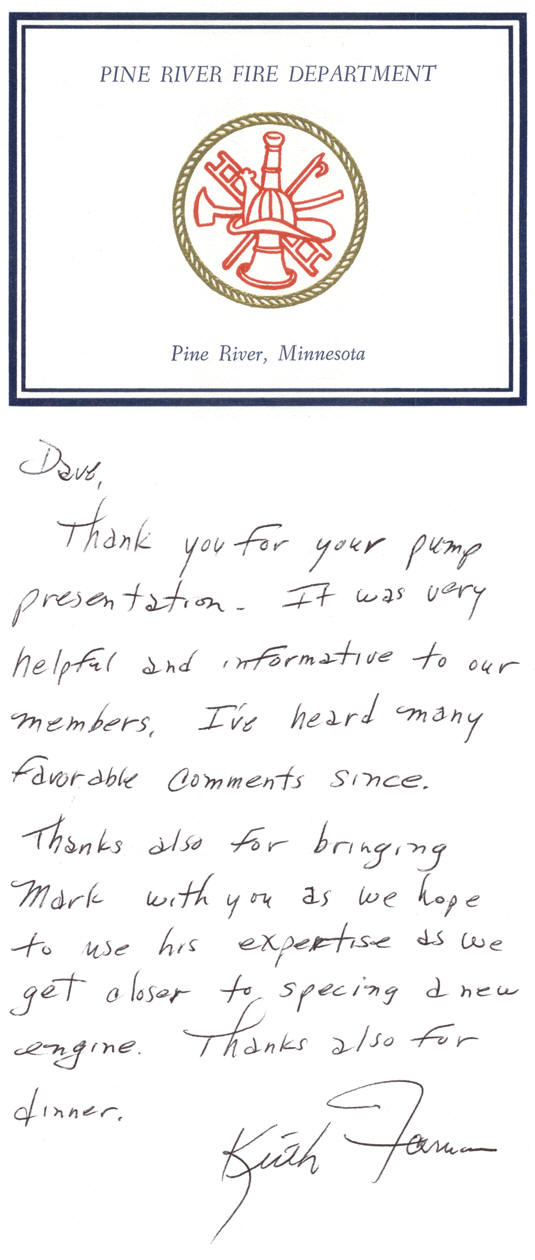 PINE RIVER FIRE DEPARTMENT
Pine River, Minnesota
Dave,
Thank you for your pump
presentation. It was very
helpful and informative to our
members. I've heard many
favorable comments since.
Thanks also for bringing
Mark with you as we hope
to use his expertise as we
get closer to specing a new
engine. Thanks also for
dinner.
Keith